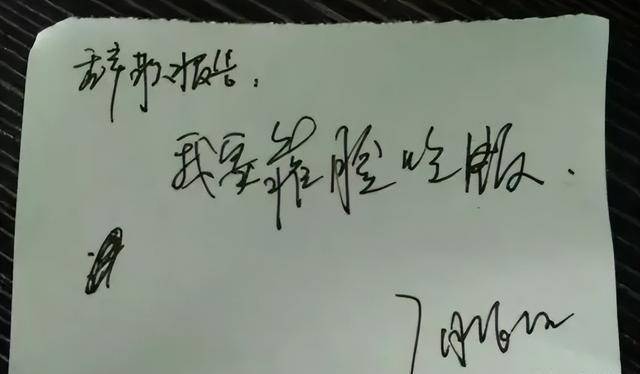 辞职报告.
我要靠脸吃饭.